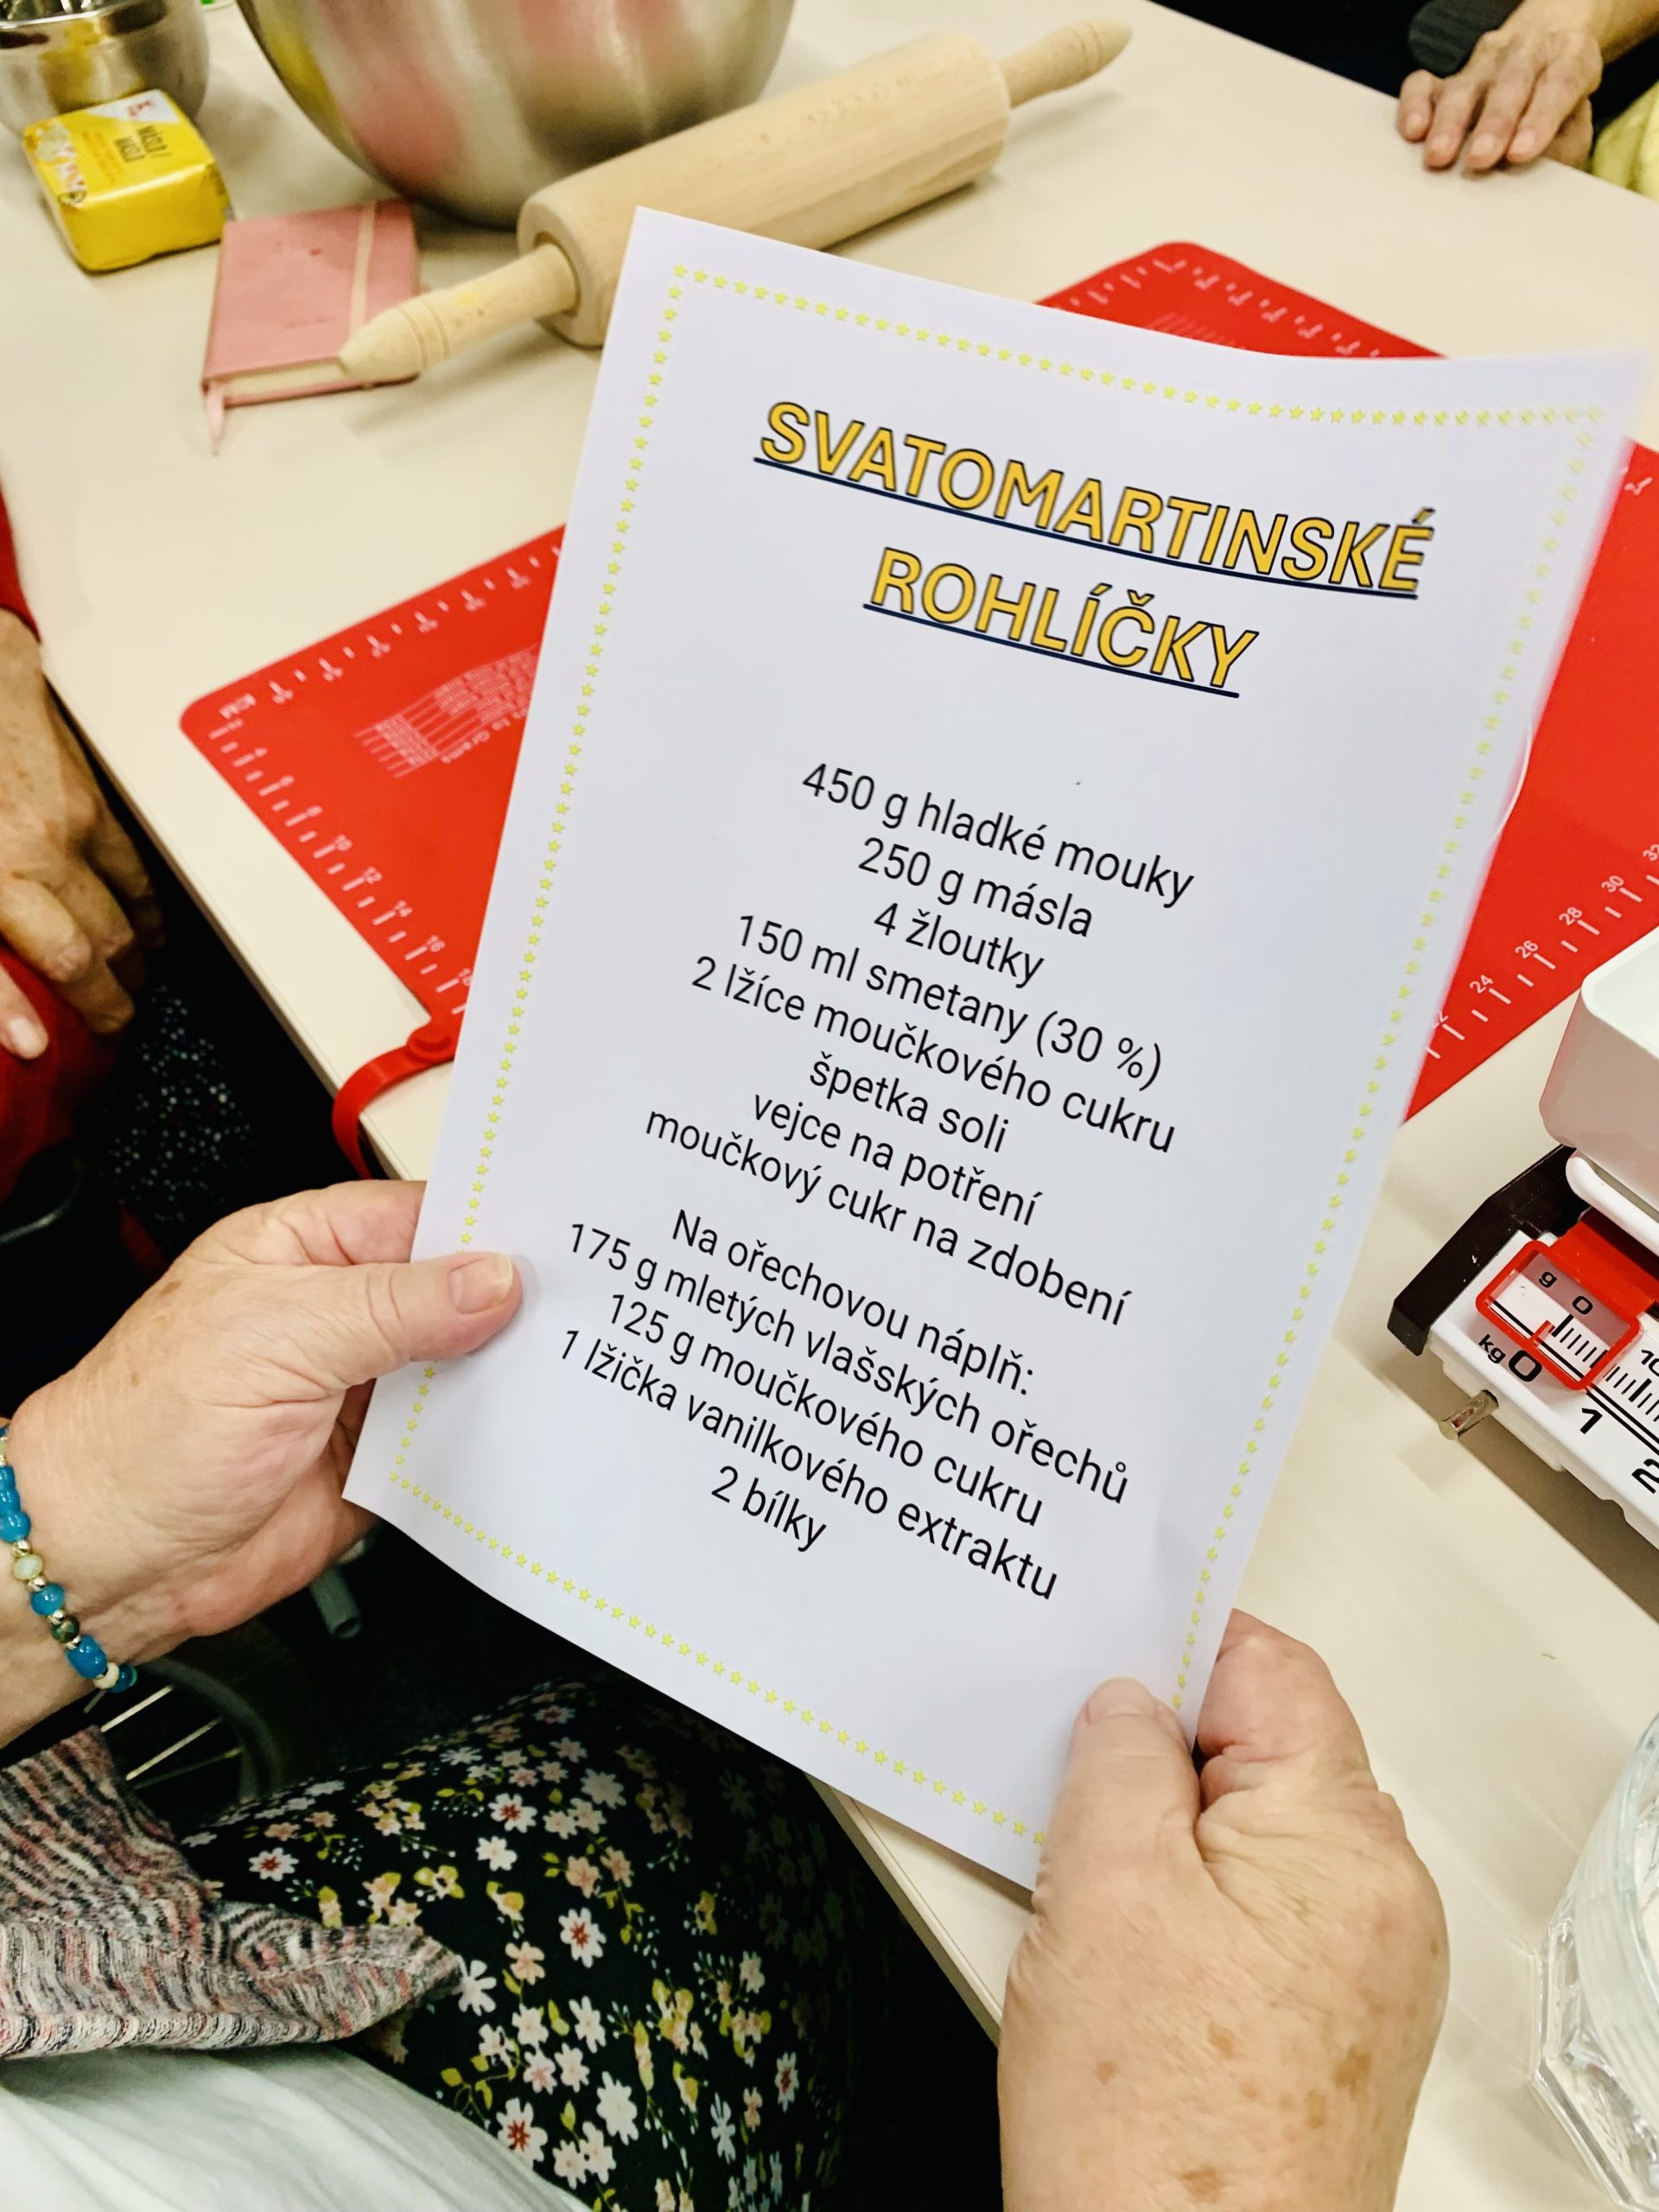 MÁSLO /
MASLO
SVATOMARTINSKÉ
ROHLÍČKY
450 g hladké mouky
250 g másla
4 žloutky
150 ml smetany (30 %)
2 lžíce moučkového cukru
špetka soli
vejce na potření
moučkový cukr na zdobení
Na ořechovou náplň:
175 g mletých vlašských ořechů
125 g moučkového cukru
1 lžička vanilkového extraktu
2 bílky
10
12
14
16
24
26
28
30
g 0
kg 0
1
2